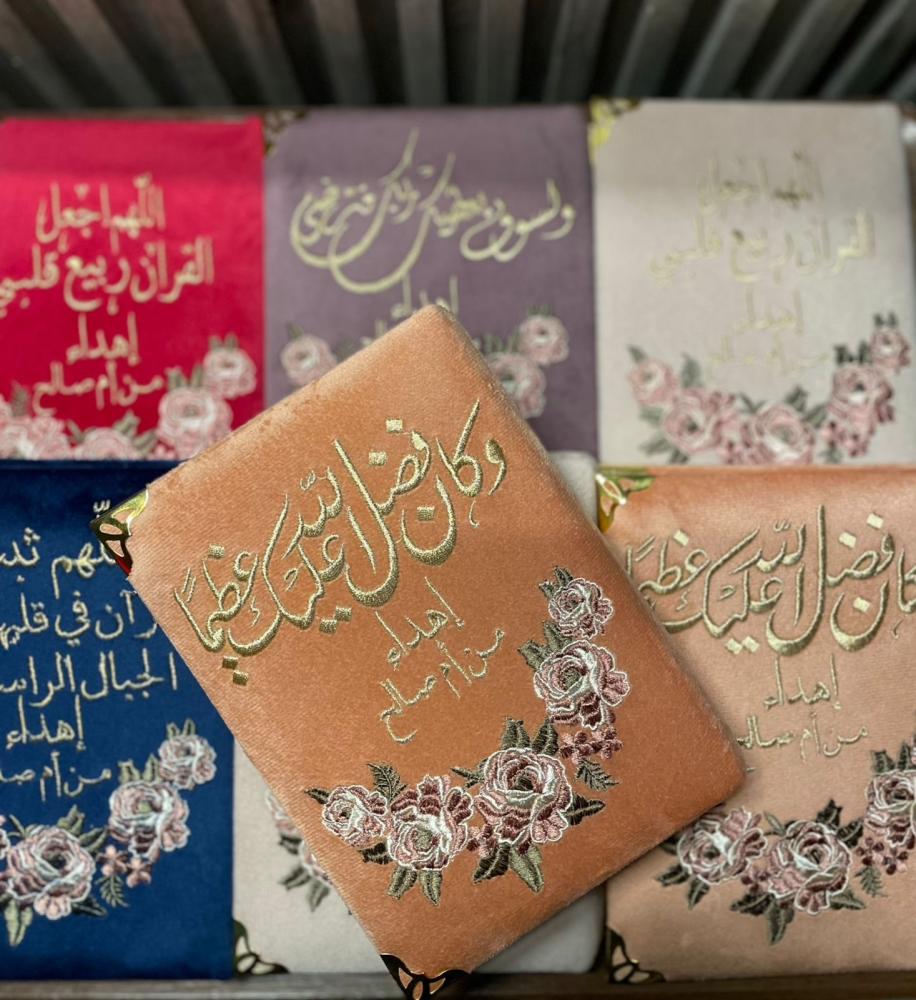 اللهم اجعل
القرآن ربيع قلبي
إهداء
من أم صالح
ولسوف يعطيك ربك فترضى
إهداء
اللهم اجعل
القرآن ربيع قلبي
إهداء
من أم صالح
وكان فضل الله عليك عظيما
إهداء
من أم صالح
في
الجبال
إهداء
من أم
فضل الله عليك
إهداء
من أم صالح